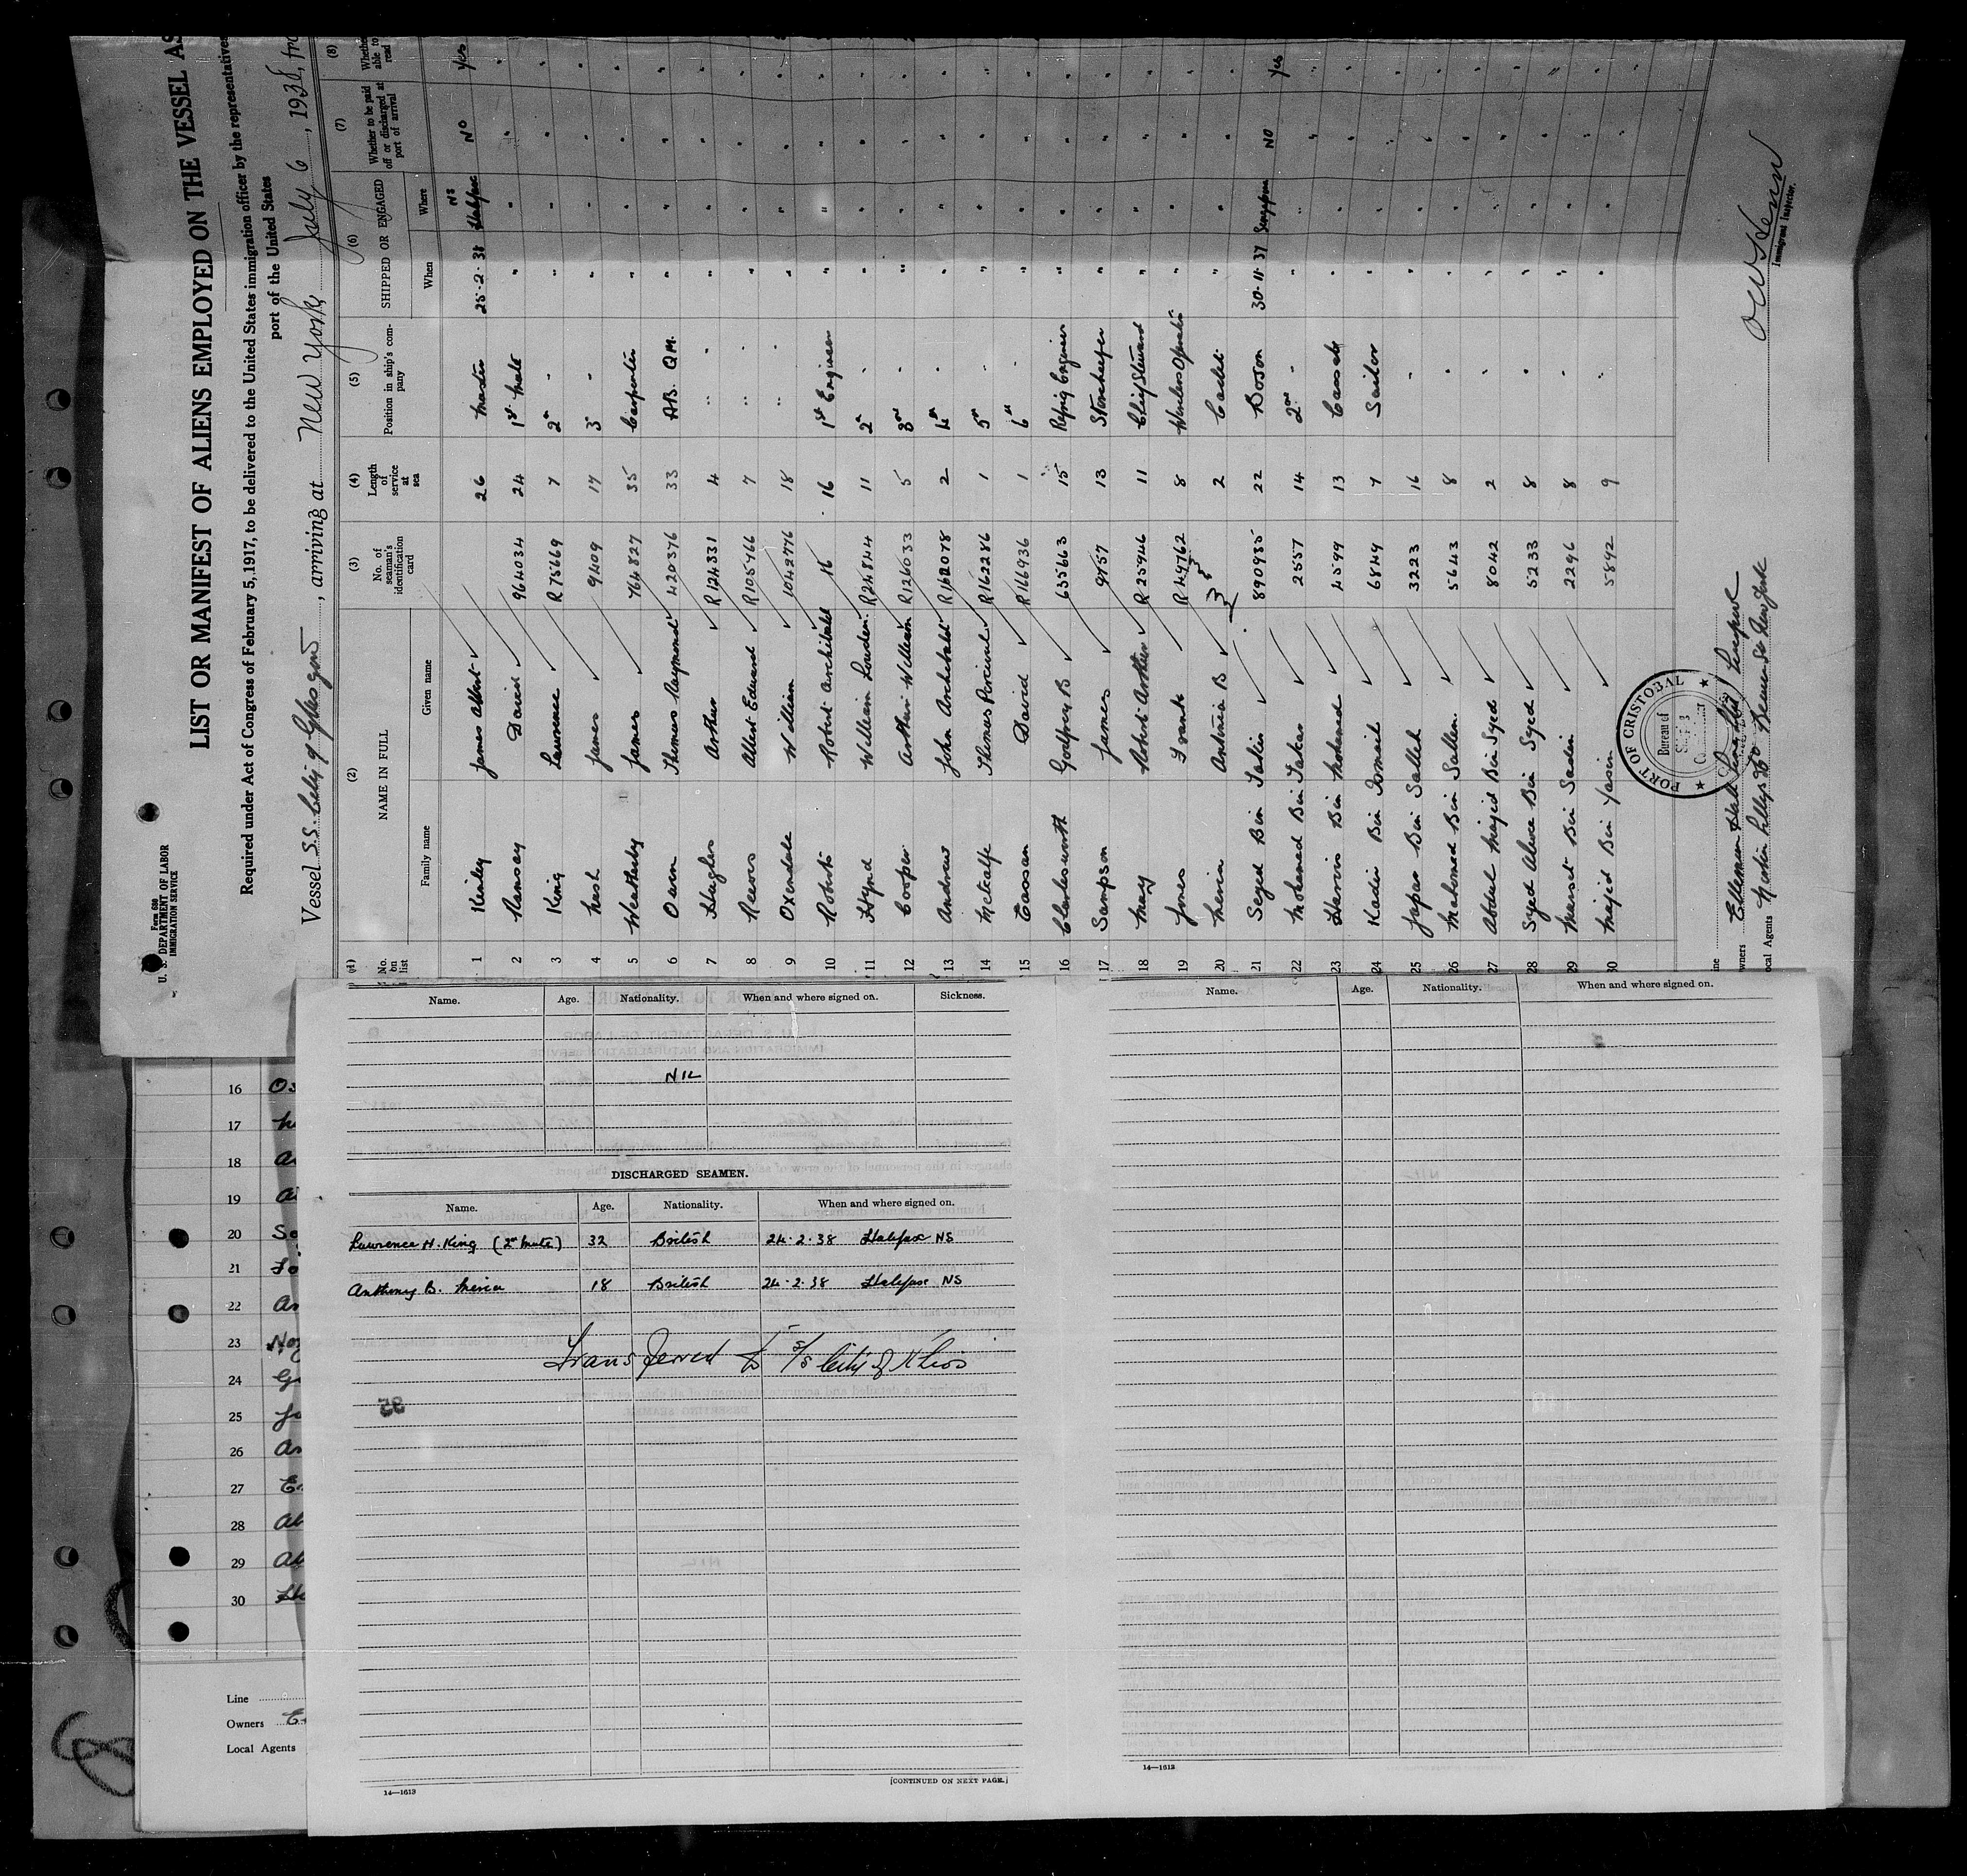 Form 680
U. S. DEPARTMENT OF LABOR
IMMIGRATION SERVICE
LIST OR MANIFEST OF ALIENS EMPLOYED ON THE VESSEL AS
Required under Act of Congress of February 5, 1917, to be delivered to the United States immigration officer by the representatives
port of the United States
Vessel S.S. City of Glasgow, arriving at New York, July 6, 1938, fro
(1) (2) (3) (4) (5) (6) (7) (8)
No. on list NAME IN FULL No. of seaman's identification card Length of service at sea Position in ship's company SHIPPED OR ENGAGED Whether to be paid off or discharged at port of arrival Whether able to read
Family name Given name When Where
1 Kinley James Albert 26 Master 25-2-38 Halifax NS No Yes
2 Ramsay David 964034 24 1st Mate " " " "
3 King Lawrence R 75669 7 2n " " " " "
4 Nash James 9409 17 3 " " " " "
5 Weatherby James 764827 35 Carpenter " " " "
6 Owen Thomas Raymond 420376 33 AB. QM. " " " "
7 Hughes Arthur R 124331 4 " " " " " "
8 Reeves Albert Edward R 105766 7 " " " " " "
9 Oxendale William 1042776 18 " " " " "
10 Roberts Robert Architald 16 16 1st Engineer " " " "
11 Hynd William Lowden R 24844 11 2n " " " " "
12 Cooper Arthur William R 126033 5 3rd " " " " "
13 Andrew John Archibald R 162078 2 4th " " " " "
14 Metcalfe Thomas Percival R 162286 1 5th " " " " "
15 Cassan David R 166936 1 6th " " " " "
16 Charlesworth Godfrey B 635663 15 Refrig Engineer " " " "
17 Sampson James 9757 13 Storekeeper " " " "
18 Mary Robert Arthur R 25946 11 Chief Steward " " " "
19 Jones Frank R 49762 8 Wireless Operator " " " "
20 Antonia B 2 Cadet " " " "
21 Seyed Bin Takin 890935 22 Boson 30-11-37 Singapore No Yes
22 Mohamed Bin Jakar 2557 14 2nd " " " " "
23 Harris Bin Mohamed 4599 13 Cassab " " " "
24 Kadir Bin Ismail 6849 7 Sailor " " " "
25 Japar Bin Salleh 3223 16 " " " " "
26 Mahomed Bin Sallem 5643 8 " " " " "
27 Abdul Majid Bin Syed 8042 2 " " " " "
28 Syed Alwee Bin Syed 5233 8 " " " " "
29 Bin Sadin 2296 8 " " " " "
30 Majid Bin Yasin 5892 9 " " " " "
PORT OF CRISTOBAL
Bureau of
ine
wners Ellerman Hall Line Ltd Liverpool
ocal Agents Norton Lilly & Co Beaver St New York
Immigrant Inspector.
16 Os
17
18 A
19
20 So
21
22 An
23 No
24
25
26 An
27 E
28 Ab
29 Ab
30
Line
Owners E
Local Agents
Name. Age. Nationality. When and where signed on. Sickness.
NIL
DISCHARGED SEAMEN.
Name. Age. Nationality. When and where signed on.
Lawrence H. King (2n Mate) 32 British 24.2.38 Halifax NS
Anthony B. 18 British 24.2.38 Halifax NS
Transferred to S/S City of Khios
14—1613
[CONTINUED ON NEXT PAGE.]
Name. Age. Nationality. When and where signed on.
14—1613